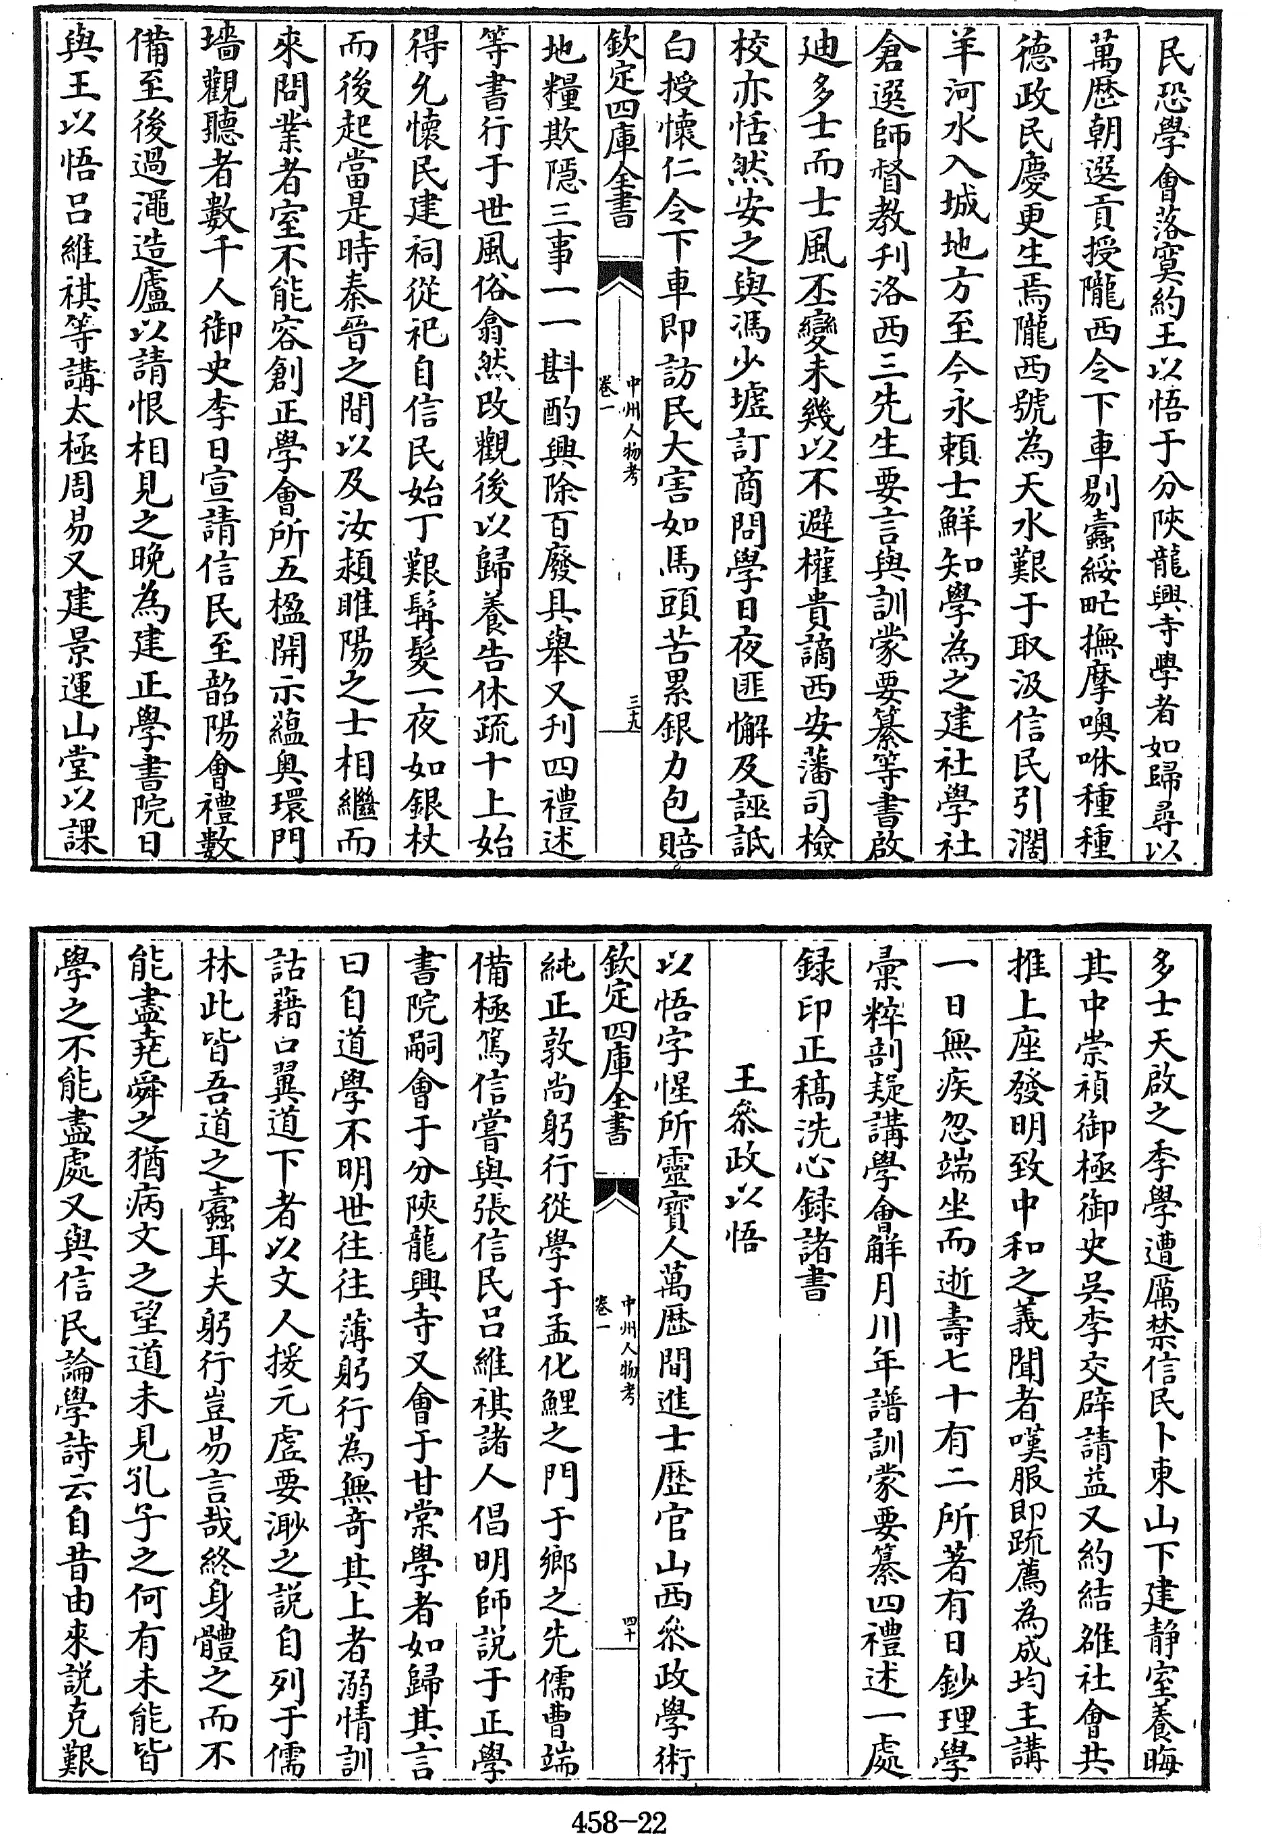 民恐學會落寞約王以悟于分陝龍興寺學者如歸尋以
萬歴朝選貢授隴西令下車剔蠹綏甿撫摩噢咻種種
德政民慶更生焉隴西號為天水艱于取汲信民引濶
羊河水入城地方至今永賴士鮮知學為之建社學社
倉選師督教刋洛西三先生要言與訓蒙要纂等書啟
迪多士而士風丕變未幾以不避權貴謫西安藩司檢
校亦恬然安之與馮少墟訂商問學日夜匪懈及誣詆
白授懷仁令下車即訪民大害如馬頭苦累銀力包賠
欽定四庫全書
中州人物考
卷一
三十九
地糧欺隱三事一一斟酌興除百廢具舉又刋四禮述
等書行于世風俗翕然改觀後以歸養告休疏十上始
得允懷民建祠從祀自信民始丁艱髯髮一夜如銀杖
而後起當是時秦晉之間以及汝潁睢陽之士相繼而
來問業者室不能容創正學會所五楹開示蘊奥環門
墻觀聽者數千人御史李日宣請信民至韶陽會禮數
備至後過澠造廬以請恨相見之晚為建正學書院日
與王以悟吕維祺等講太極周易又建景運山堂以課
多士天啟之季學遭厲禁信民卜東山下建静室養晦
其中崇禎御極御史吳李交辟請益又約結雒社會共
推上座發明致中和之義聞者嘆服即疏薦為成均主講
一日無疾忽端坐而逝壽七十有二所著有日鈔理學
彚粹剖疑講學會解月川年譜訓蒙要纂四禮述一處
録印正稿洗心録諸書
王叅政以悟
以悟字惺所靈寳人萬歴間進士歴官山西叅政學術
欽定四庫全書
中州人物考
卷一
四十
純正敦尚躬行從學于孟化鯉之門于鄉之先儒曹端
備極篤信嘗與張信民吕維祺諸人倡明師説于正學
書院嗣會于分陜龍興寺又會于甘棠學者如歸其言
曰自道學不明世往往薄躬行為無竒其上者溺情訓
詁藉口翼道下者以文人援元虚要渺之説自列于儒
林此皆吾道之蠹耳夫躬行豈易言哉終身體之而不
能盡堯舜之猶病文之望道未見孔子之何有未能皆
學之不能盡處又與信民論學詩云自昔由來説克艱
458-22